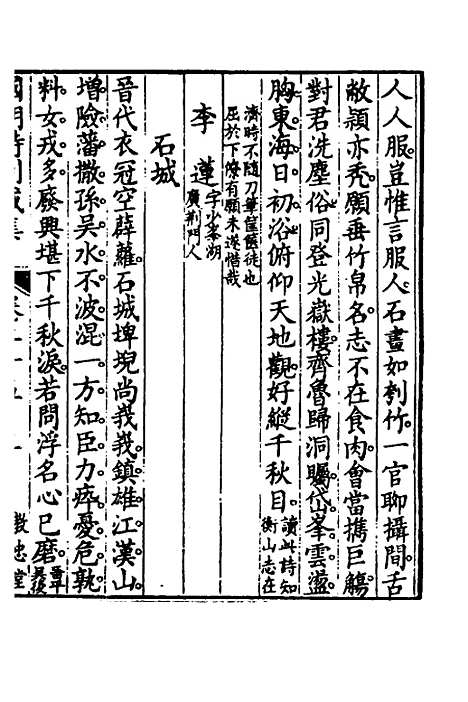 人人服豈惟言服人石畫如刳竹一官聊攝間舌
敝穎亦禿願垂竹帛名志不在食肉會當携巨觴
對君洗塵俗同登光嶽樓齊魯歸洞矚岱峯雲盪
胸東海日初浴俯仰天地觀好縱千秋目讀此詩知衡山志在
濟時不隨刀筆筐篋徒也
屈於下僚有願未遂惜哉
李蓮字少峯湖廣荆門人
石城
晉代衣冠空薜蘿石城埤堄尚峩峩鎮雄江漢山
增險藩撤孫吳水不波混一方知臣力瘁憂危孰
料女戎多廢興堪下千秋淚若問浮名心已磨章最後
國朝詩別裁集 卷二十五 教忠堂